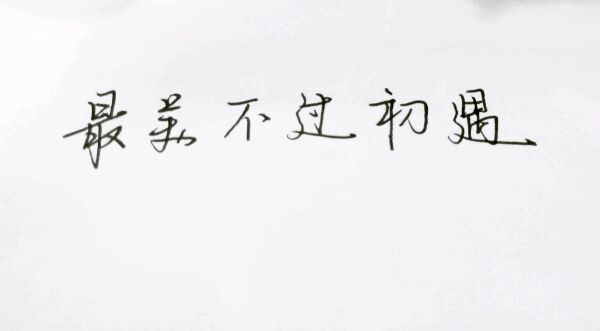 最美不过初遇